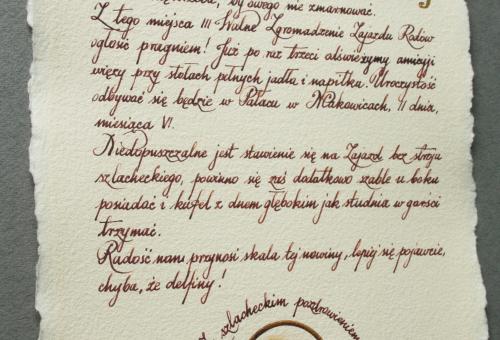 by owego nie zmarnować.
Z tego miejsca III Walne Zgromadzenie Zajazdu Rodów
ogłosić pragniem! Już po raz trzeci odświeżymy amicyji
więzy przy stołach pełnych jadła i napitku. Uroczystość
odbywać się będzie w Pałacu w Makowicach, 11 dnia,
miesiąca VI.
Niedopuszczalne jest stawienie się na Zajazd bez stroju
szlacheckiego, powinno się zaś dodatkowo szable u boku
posiadać i kufel z dnem głębokim jak studnia w garści
trzymać.
Radość nam przynosi skala tej nowiny, lepiej się pojawcie,
chyba, że delfiny!
szlacheckim pozdrowieniem